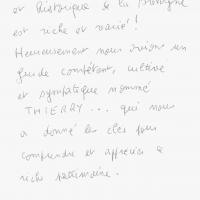 et historique de la Bretagne
est riche et varié !
Heureusement nous avions un
guide compétent, cultivé
et sympatique nommé
THIERRY... qui nous
a donné les clés pour
comprendre et apprécier ce
riche patrimoine.